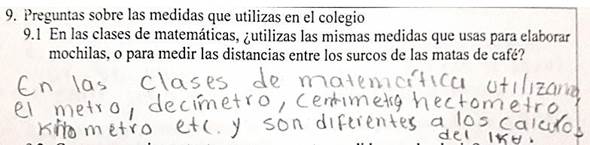 9. Preguntas sobre las medidas que utilizas en el colegio
9.1 En las clases de matemáticas, ¿utilizas las mismas medidas que usas para elaborar
mochilas, o para medir las distancias entre los surcos de las matas de café?
En las clases de matemática utilizamo
el metro, decímetro, centimetro hectometro
Kilo metro etc. y son diferentes a los calculo
del